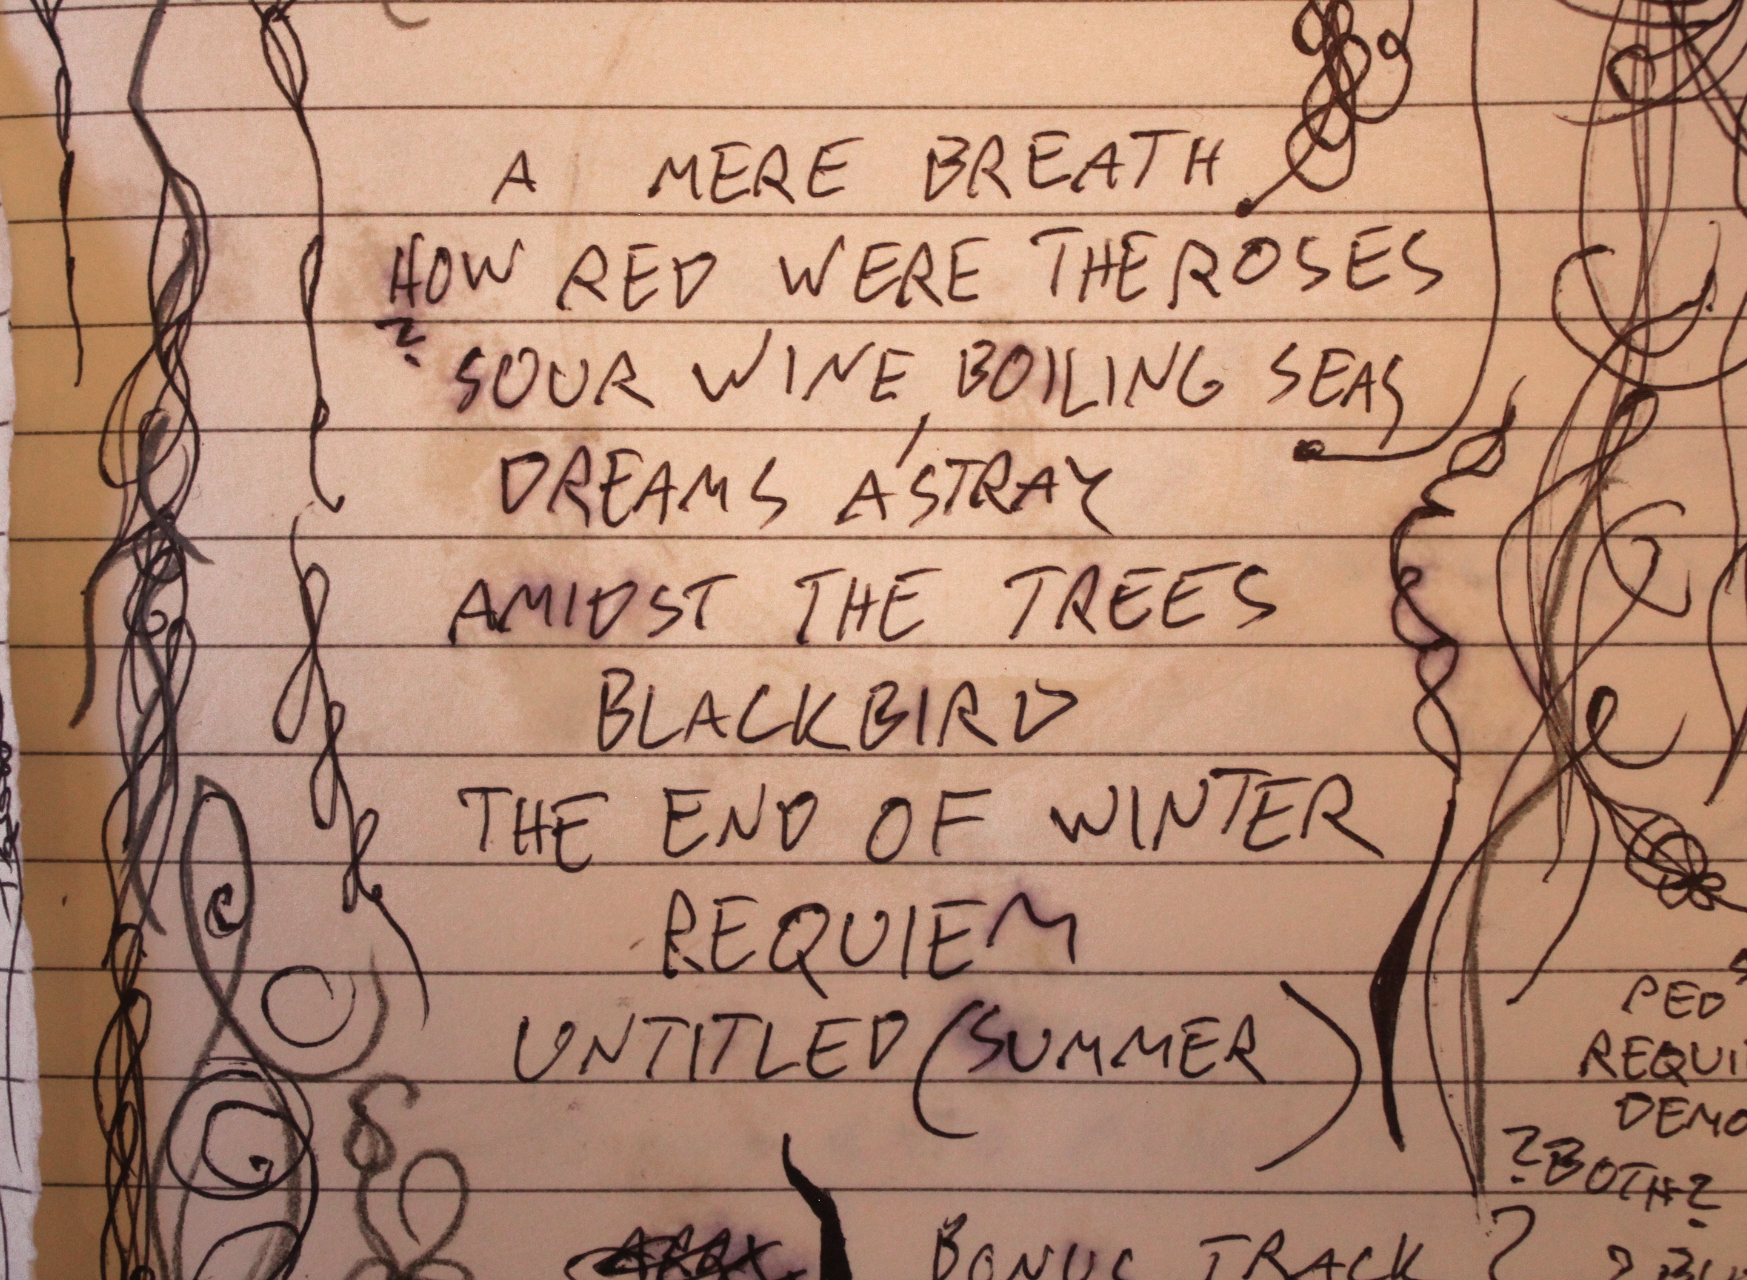 A MERE BREATH
HOW RED WERE THE ROSES
?
SOUR WINE, BOILING SEAS
DREAMS A'STRAY
AMIDST THE TREES
BLACKBIRD
THE END OF WINTER
REQUIEM
UNTITLED (SUMMER)
BONUS TRACK ?
REQUI
DEMO
?BOTH?